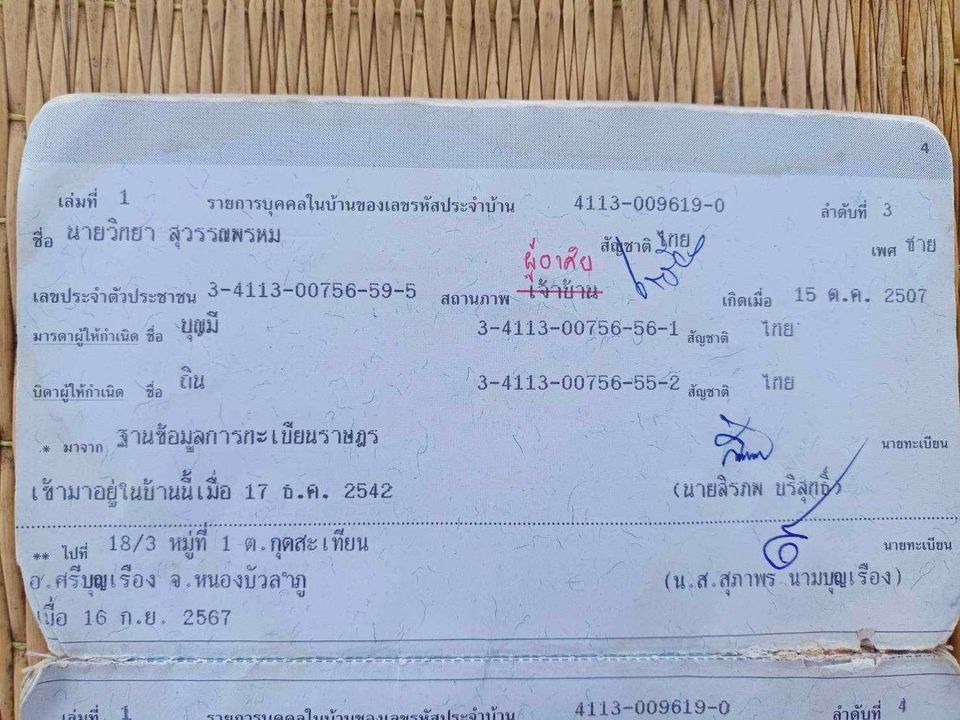 4
เล่มที่ 1 รายการบุคคลในบ้านของเลขรหัสประจำบ้าน 4113-009619-0 ลำดับที่ 3
ชื่อ นายวิทยา สุวรรณพรหม สัญชาติ ไทย เพศ ชาย
ผู้อาศัย
เลขประจำตัวประชาชน 3-4113-00756-59-5 สถานภาพ เจ้าบ้าน เกิดเมื่อ 15 ต.ค. 2507
มารดาผู้ให้กำเนิด ชื่อ บุญมี 3-4113-00756-56-1 สัญชาติ ไทย
บิดาผู้ให้กำเนิด ชื่อ ถิน 3-4113-00756-55-2 สัญชาติ ไทย
* มาจาก ฐานข้อมูลการทะเบียนราษฎร นายทะเบียน
เข้ามาอยู่ในบ้านนี้เมื่อ 17 ธ.ค. 2542 (นายสิรภพ บริสุทธิ์)
** ไปที่ 18/3 หมู่ที่ 1 ต.กุดสะเทียน นายทะเบียน
อ.ศรีบุญเรือง จ.หนองบัวลำภู (น.ส.สุภาพร นามบุญเรือง)
เมื่อ 16 ก.ย. 2567
เล่มที่ 1 รายการบุคคลในบ้านของเลขรหัสประจำบ้าน 4113-009619-0 ลำดับที่ 4